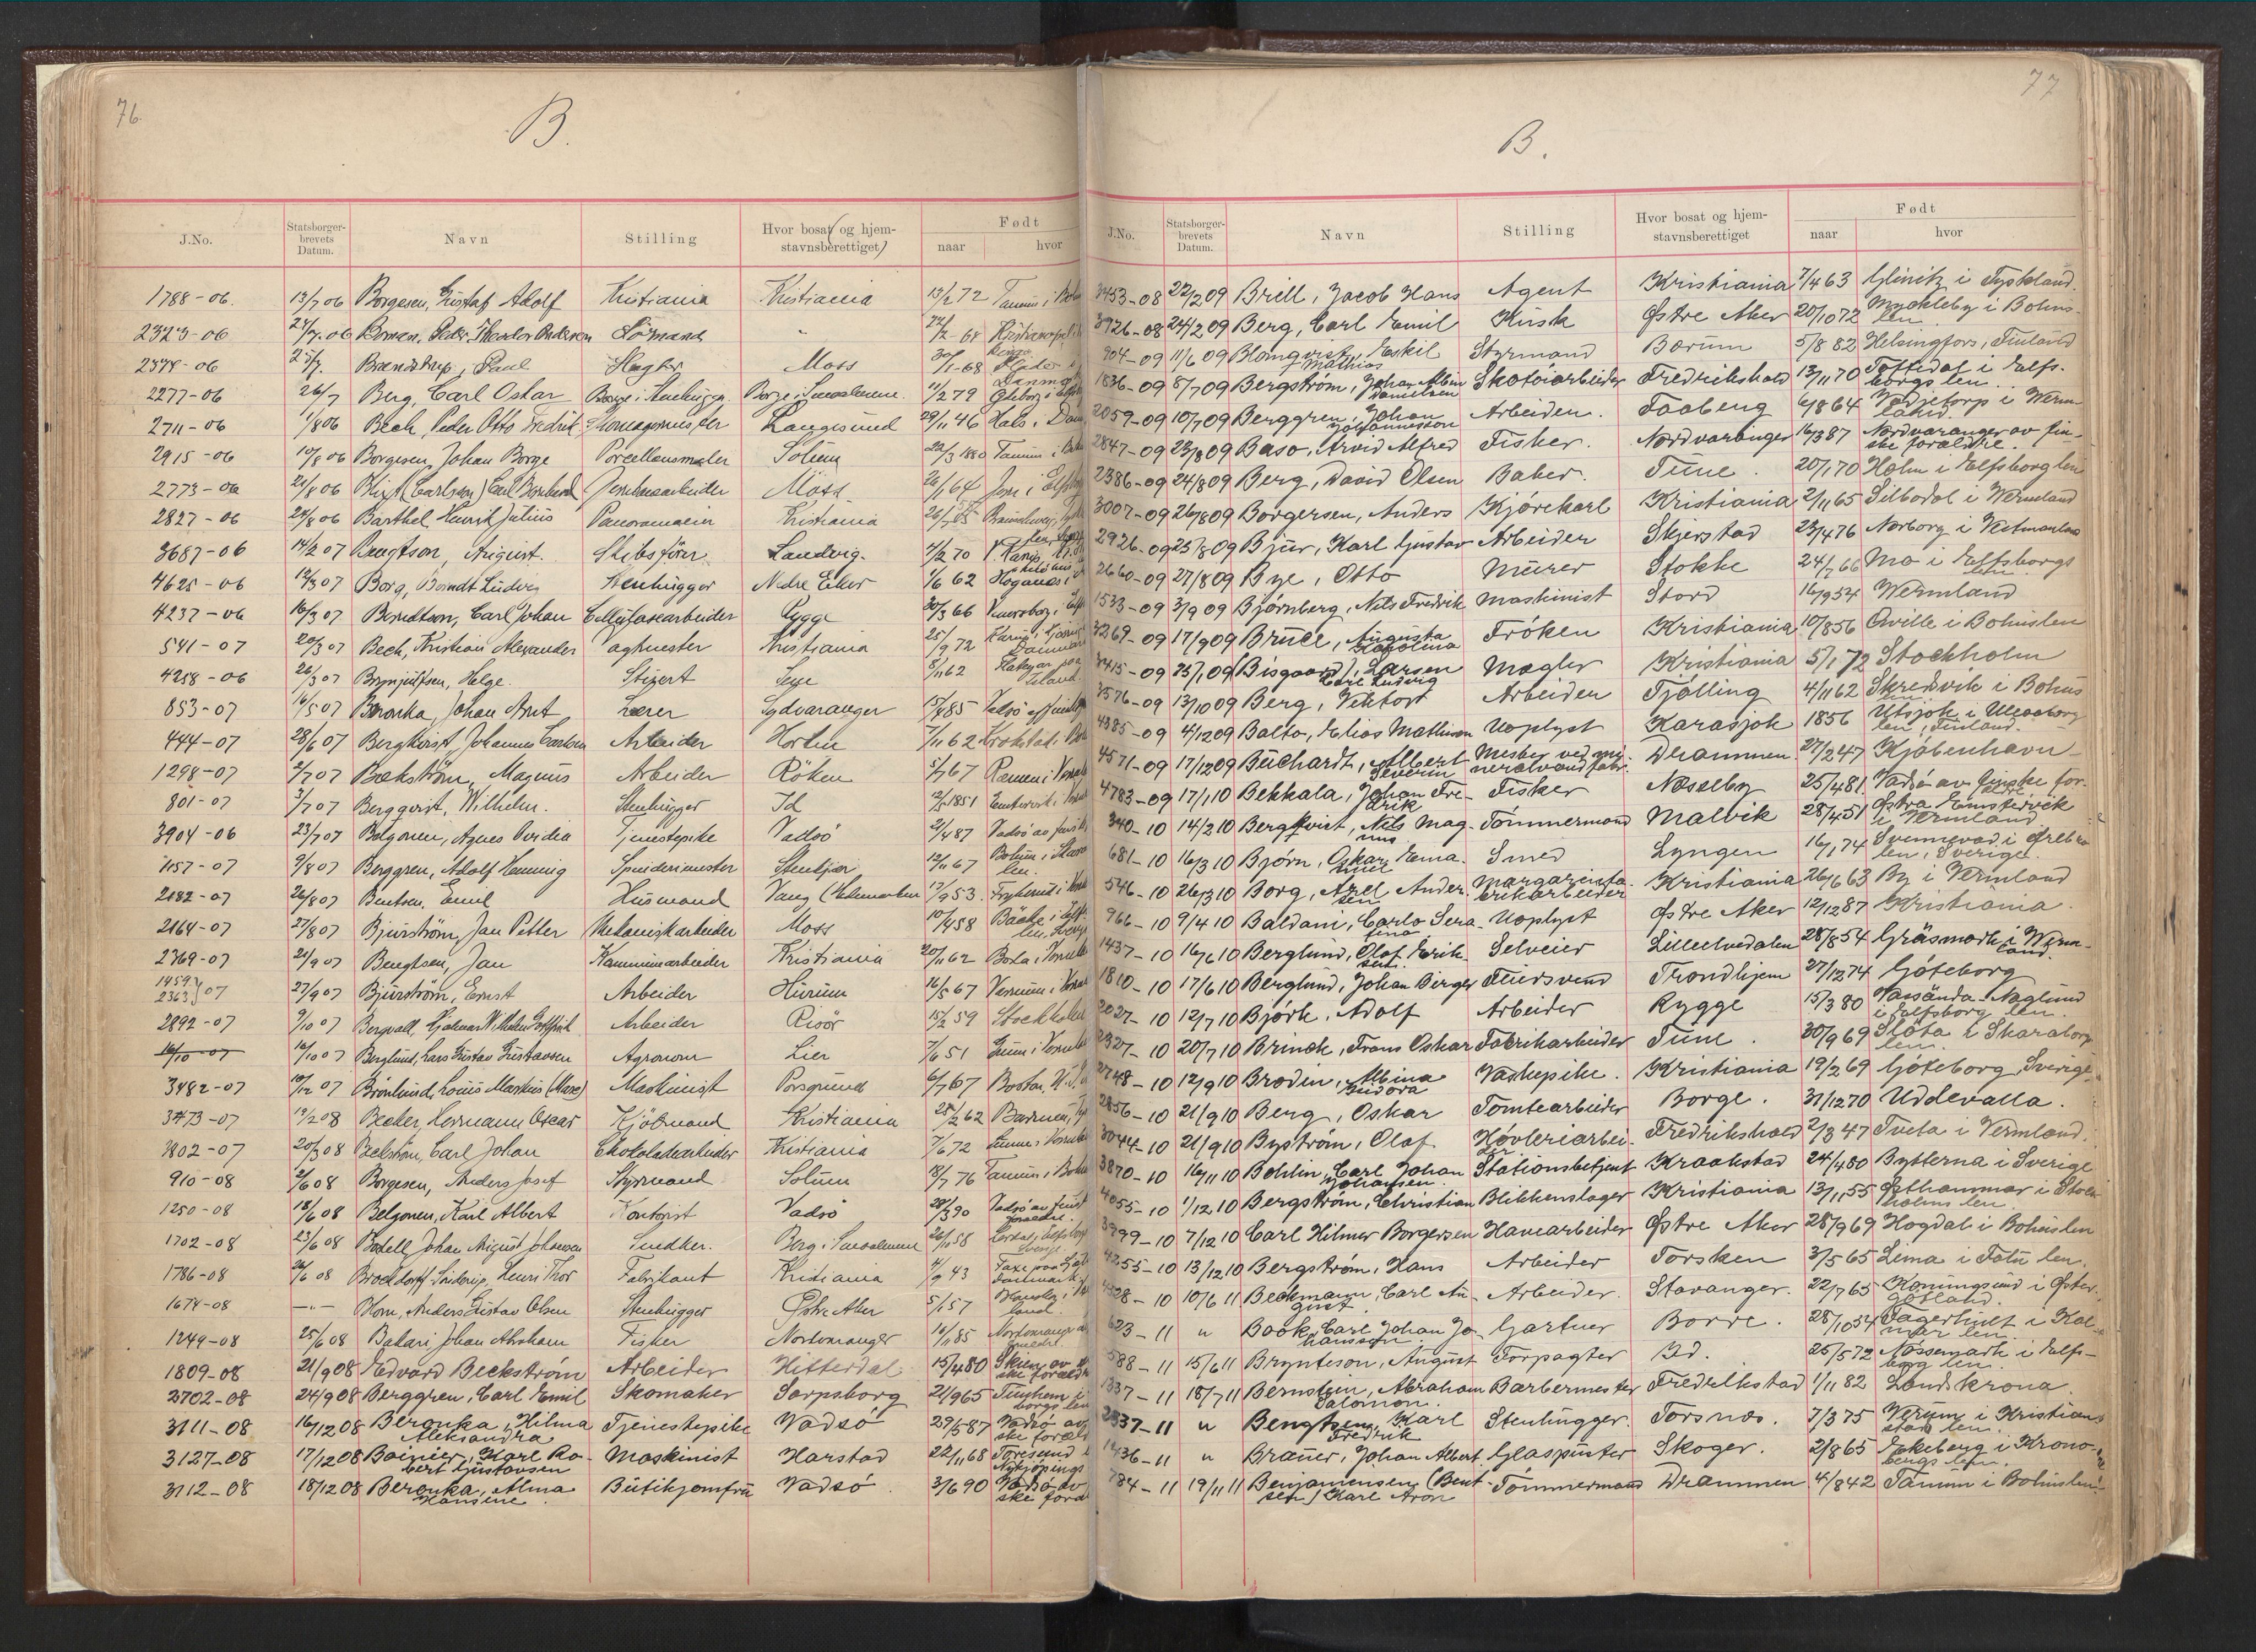 76.
B.
J.No. Statsborger-brevets Datum. Navn Stilling Hvor bosat (og hjem-stavnsberettiget) Født naar hvor
1788-06. 13/7 06 Borgesen, Gustaf Adolf Kristiania Kristiania 13/2 72 Tanum i
2323-06 Boman, Peder Theodor Sömand "
2378-06 25/7. Brandstrup, Paul Moss 30/1-68
2277-06 26/7 Berg, Carl Oskar Borge i Smaalenene. 11/2 79
2711-06 1/8 06 Bech, Peder Otto Fredrik Langesund 29/11 46 Hals i
2915-06 10/8 06 Borgesen, Johan Borge Porcellansmaler Solum 22/3 1880 Tanum i
2773-06 21/8 06 (Carlsson) Carl Moss 26/1 64
2827-06 24/8 06 Barthel, Henrik Julius Kristiania
3687-06 14/2 07 Bengtson, August. Skibsförer Landvig. 4/2 70
4625-06 12/3 07 Borg, Berndt Ludvig Stenhugger Nedre Eker 1/6 62 Höganäs i
4237-06 16/3 07 Berndtson, Carl Johan Cellulosearbeider Rygge 30/3 66
541-07 20/3 07 Bech, Kristian Alexander Kristiania 25/9 72
4258-06 26/3 07 Brynjulfsen, Helge. 8/11 62 Island.
853-07 16/5 07 Beronka, Johan Lærer Sydvaranger 15/4 85 Vadsö
444-07 28/6 07 Bergkvist, Johannes Carlson Arbeider Horten 7/11 62
1298-07 2/7 07 Bækström, Magnus Arbeider Röken 5/7 67
801-07 3/7 07 Bergqvist, Wilhelm. Stenhugger Id
3904-06 23/7 07 Belgonen, Agnes Ovidia Tjenestepike Vadsö 21/4 87 Vadsö av
1157-07 9/8 07 Berggren, Adolf Henning Spinderimester Stenkjær 12/11 67
2082-07 26/8 07 Bentsen, Emil Husmand Vang 17/9 53.
2164-07 27/8 07 Bjurström, Jan Petter Mekaniskarbeider Moss 10/4 58
2769-07 21/9 07 Bengtsen, Jan Kaminarbeider Kristiania 20/11 62
1459
2363 } 07 27/9 07 Bjurström, Ernst Arbeider Hurum 16/5 67
2892-07 9/10 07 Bergvall, Hjalmar Wilhelm Gottfrid Arbeider Risör 15/2 59 Stockholm
16/10-07 16/10 07 Berglund, Lars Gustav Gustavsen Agronom Lier 7/6 51
3482-07 10/12 07 Brönlund, Louis Markus Maskinist Porsgrund 6/7 67 Boston
3473-07 19/2 08 Becker, Hermann Oscar Kjöbmand Kristiania 28/2 62 Barmen,
3802-07 20/3 08 Bælström, Carl Johan Chokoladearbeider Kristiania 7/6 72
910-08 2/6 08 Borgesen, Anders Josef Styrmand Solum 18/7 76 Tanum i
1250-08 18/6 08 Belgonen, Karl Albert Kontorist Vadsö 28/3 90 Vadsö av
1702-08 23/6 08 Bodell, Johan August Johansen Snedker. Berg i Smaalenene 26/11 58
1786-08 Brockdorff Sinderup, Henri Thor Fabrikant Kristiania 4/9 43
1674-08 —"— Blom, Anders Gustav Olsen Stenhugger Östre Aker 5/1 57
1249-08 25/6 08 Bakari, Johan Abraham Fisker Nordvaranger 10/11 85
1809-08 21/9 08 Edvard Beckström Arbeider Hitterdal 15/4 80 Skien av
3702-08 24/9 08 Berggren, Carl Emil Skomaker Sarpsborg 21/9 65
3111-08 16/12 08 Beronka, Hilma Aleksandra Tjenestepike Vadsö 29/5 87 Vadsö av
3127-08 17/12 08 Karl Robert Gustavsen Maskinist Harstad 22/11 68
3112-08 18/12 08 Beronka, Alma Hansine Butikjomfru Vadsö 3/6 90 Vadsö av
77
B.
J.No. Statsborger-brevets Datum. Navn Stilling Hvor bosat og hjem-stavnsberettiget Født naar hvor
3453-08 22/2 09 Brill, Jacob Hans Agent Kristiania 7/4 63 Gleinitz i Tyskland.
3926-08 24/2 09 Berg, Carl Emil Kusk Östre Aker 20/10 72 Myckleby i Bohus-len
904-09 11/6 09 Blomqvist, Eskil Mathias Styrmand Bærum 5/8 82 Helsingfors, Finland
1836-09 8/7 09 Bergström, Johan Albin Danielsen Skotöiarbeider Fredrikshald 13/11 70 Töftedal i Elfs-borgs len.
2059-09 10/7 09 Berggren, Johan Johannesson Arbeider. Faaberg 6/8 64 i Werm-land
2847-09 23/8 09 Baso, Arvid Alfred Fisker. Nordvaranger 16/3 87 Nordvaranger av fin-ske forældre.
2386-09 24/8 09 Berg, David Olsen Baker. Tune. 20/1 70 Holm i Elfsborg len
3007-09 26/8 09 Borgersen, Anders Kjörekarl Kristiania 2/11 65 Silbodal i Wermland
2926-09 25/8 09 Bjur, Karl Gustav Arbeider Skjerstad 23/4 76 Norberg i Vestmanland
2660-09 27/8 09 Bye, Otto Murer Stokke 24/7 66 Mo i Elfsborgs len
1533-09 3/9 09 Björnberg, Nils Fredrik Maskinist Stord 16/9 54 Wermland
3269-09 17/9 09 Bruce, Augusta Karolina Fröken Kristiania 10/8 56 Qville i Bohuslen
3415-09 Bisgaard, Larsen Carl Ludvig Mægler Kristiania 5/1 72 Stockholm
3576-09 13/10 09 Berg, Viktor Arbeider Tjölling 4/11 62 Skredsvik i Bohus len
4385-09 4/12 09 Balto, Elias Mathisen Uoplyst Karasjok 1856 Utsjok i Uleaaborg len, Finland.
4571-09 17/12 09 Buchardt, Albert Severin Mester ved mi-neralvandfabr. Drammen 27/2 47 Kjöbenhavn
4783-09 17/1 10 Bekkala, Johan Fre-drik Fisker Næsseby 25/4 81. Vadsö av finske for-ældre
340-10 14/2 10 Bergkvist, Nils Mag-nus Tömmermand Malvik 28/4 51 Östra Emtervik i Wermland
681-10 16/3 10 Björn, Oskar Ema-nuel Smed Lyngen 16/1 74 Svennevad i Örebro len, Sverige.
546-10 26/3 10 Borg, Axel Ander-sen Margarinfa-brikarbeider Kristiania 26/6 63 By i Vermland
966-10 9/4 10 Baldani, Carlo Sera-fino Uoplyst Östre Aker 12/12 87 Kristiania.
1437-10 16/6 10 Berglund, Olaf Erik-sen. Selveier Lilleelvedalen 28/8 54 Gräsmark i Werm-land.
1810-10 17/6 10 Berglund, Johan Birger Trondhjem 27/12 74 Göteborg
2027-10 12/7 10 Björk, Adolf Arbeider Rygge 15/3 80 Naglund i Elfsborg len.
2327-10 20/7 10 Brinck, Frans Oskar Fabrikarbeider Tune. 30/9 69 Slöta i Skaraborg len.
2748-10 12/9 10 Brodin, Albina Eudora Vaskepike. Kristiania 19/2 69 Göteborg, Sverige.
2856-10 21/9 10 Berg, Oskar Tomtearbeider Borge. 31/12 70 Uddevalla.
3044-10 21/9 10 Byström, Olaf Hövleriarbei-der Fredrikshald 2/3 47 Tveta i Vermland.
3870-10 16/11 10 Bohlin, Carl Johan Johansen. Stationsbetjent Kraakstad 24/4 80 Bytterna i Sverige
4055-10 1/12 10 Bergström, Christian Blikkenslager Kristiania 13/1 55 Östhammar i Stock-holms len.
3999-10 7/12 10 Carl Hilmer Borgersen Havearbeider Östre Aker 28/9 69 Hogdal i Bohuslen
4255-10 13/12 10 Bergström, Hans Arbeider Torsken 3/5 65 Lima i Falu len.
10 10/6 11 Beckmann, Carl Au-gust Arbeider. Stavanger. 22/7 65 Konungsund i Öster-götland.
623-11 " Book, Carl Johan Jo-hanssen Gartner Borre. 28/10 54 Fagerhult i Kal-mar len.
588-11 15/6 11 Brynteson, August Forpagter Id. 25/5 72 Nössemark i Elfs-borg len.
1337-11 18/7 11 Bernstein, Abraham Salomon. Barbermester Fredrikstad 1/11 82 Landskrona.
2337-11 " Bengtsen, Karl Fredrik Stenhugger. Torsnes. 7/3 75 Verum i Kristian-stad len.
1436-11 " Brauer, Johan Albert. Glaspuster Skoger. 2/8 65 Ekeberg i Krono-bergs len.
784-11 19/11 11 Benjaminsen (Bent-sen) Karl Aron Tömmermand Drammen 4/8 42 Tanum i Bohuslen.